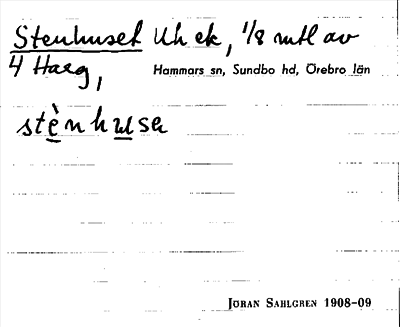 Stenhuset Uh ek, 1/8 mtl av
4 Haeg, Hammars sn, Sundbo hd, Örebro län
stènhusa
JÖRAN SAHLGREN 1908-09